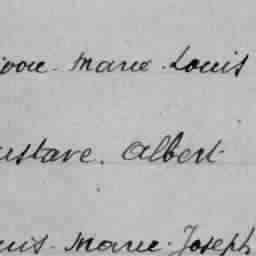 Marie. Louis
ustave. Albert
Marie. Joseph